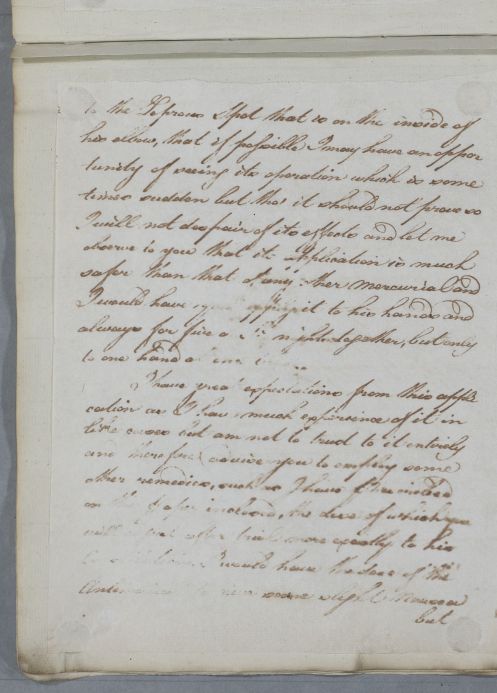 to the Leprous Spot that is on the inside of
his elbow, that if possible I may have an oppor
tunity of seeing its operation which is some
times sudden but tho' it should not prove so
I will not despair of its effects and let me
observe to you that its application is much
safer than that of any other mercurial and
I would have you apply it to his hands and
always for five a Six nights together, but only
to one hand at one
I have great expectations from this appli
cation as I have much experience of it in
like cases but am not to trust to it entirely
and therefore advise you to employ some
other remedies, such as I have
on the paper inclosed, the dose of which you
will after trial more exactly to his
would have the dose of the
some slight Nausea
but